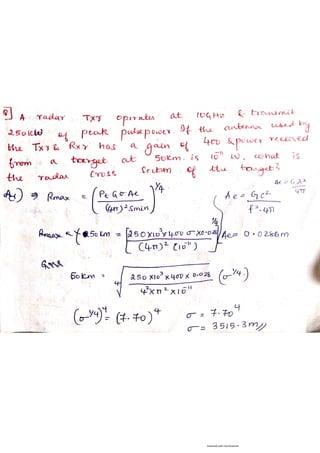 Q] A radar Txr operates at 10GHz & transmit
250KW of peak pulse power. If the antenna used by
the Txr & Rxr has a gain of 400 & power received
from a target at 50km is 10^-11 W, what is
the radar cross section of the target?
Ae = Gλ²/4π
⇒ Rmax = [Pt G σ Ae / (4π)² Smin]^1/4
Ae = Gc² / f²·4π
50km = [250×10³×400 σ×0.028 / (4π)² (10^-11)]^1/4
Ae = 0.0286m
50km = 4√(250×10³×400×0.028 / 4²×π²×10^-11) (σ^1/4)
(σ^1/4)^4 = (7.70)^4
σ = 7.70^4
σ = 3515.3m//
Scanned with CamScanner